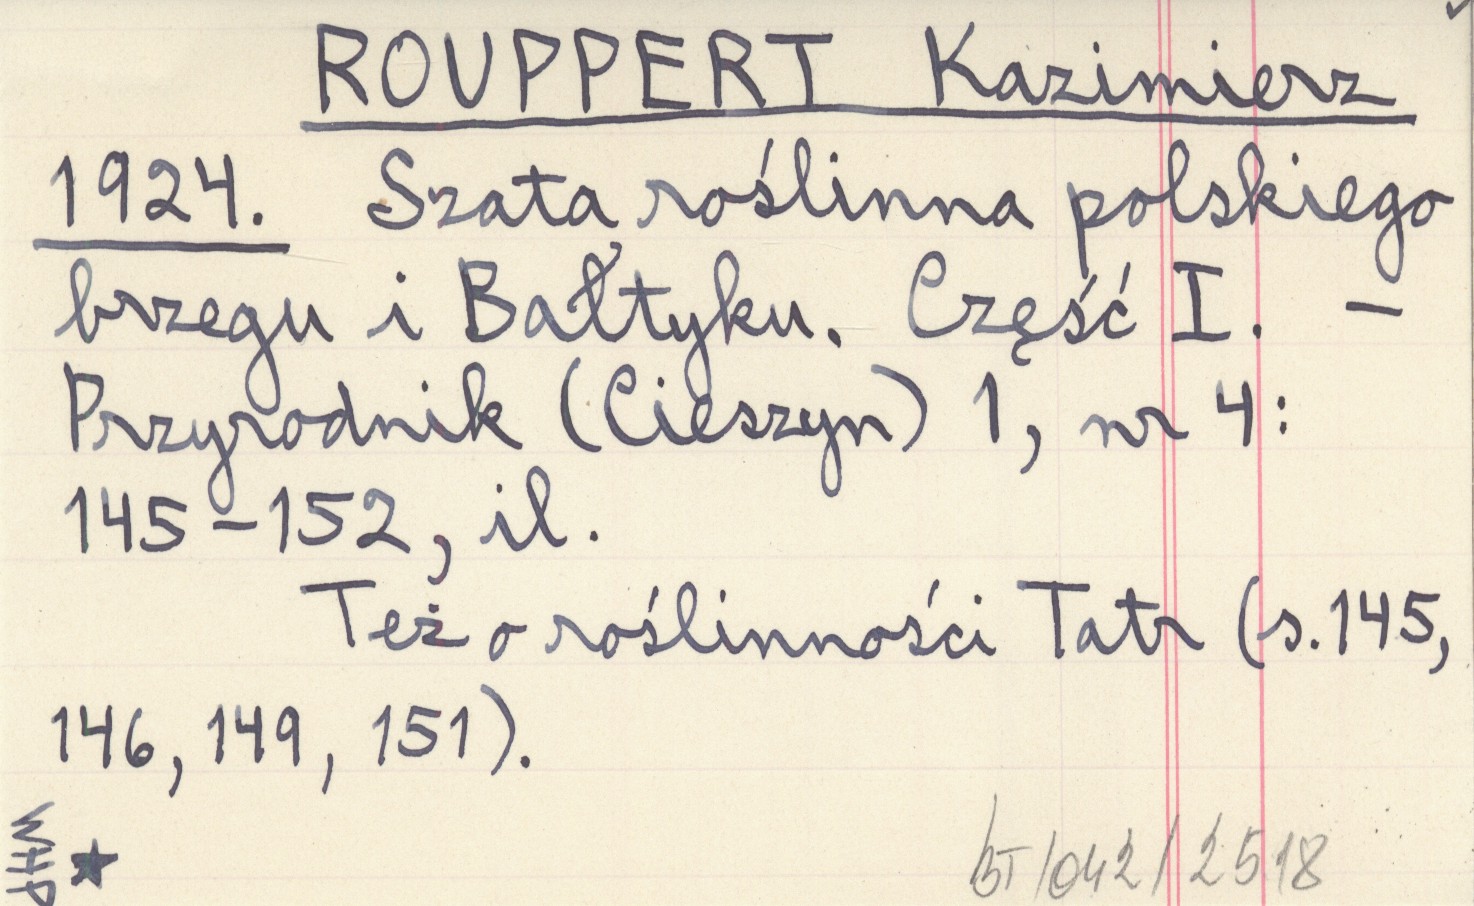 ROUPPERT Kazimierz
1924. Szata roślinna polskiego
brzegu i Bałtyku. Część I. –
Przyrodnik (Cieszyn) 1, nr 4:
145–152, il.
Też o roślinności Tatr (s. 145,
146, 149, 151).
WHP
BT/042/2518